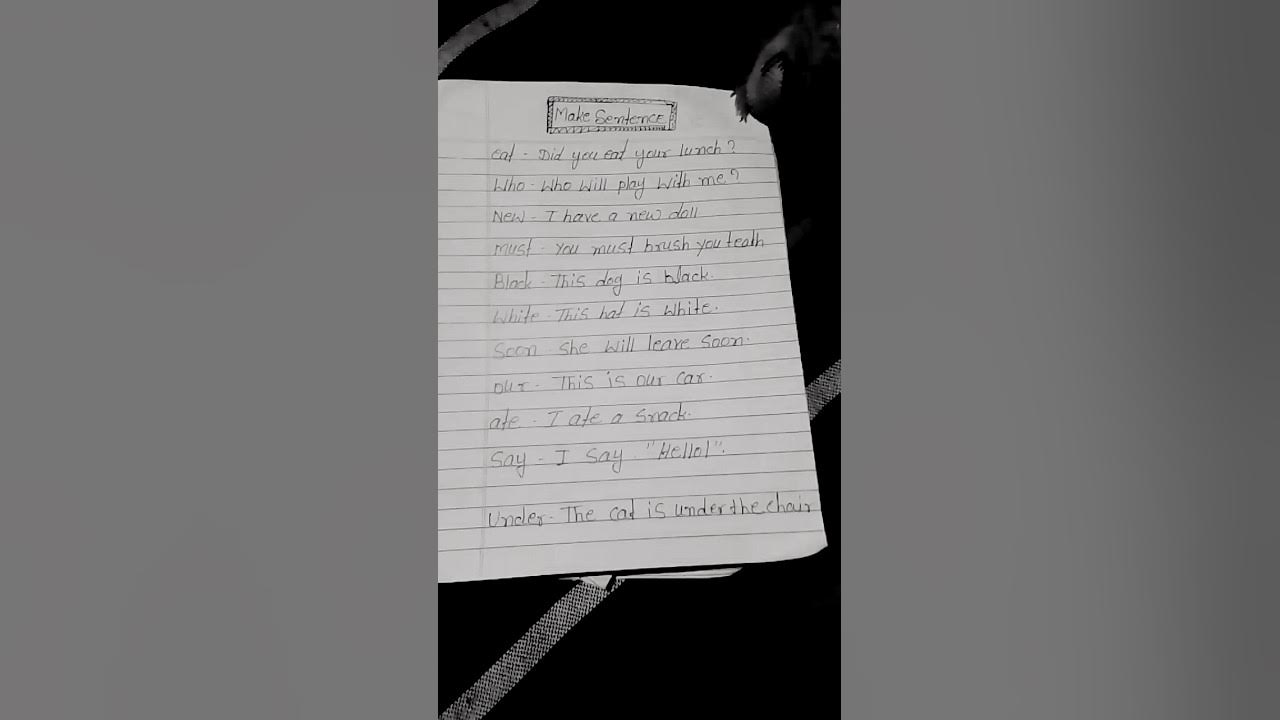 Make Sentence
eat - Did you eat your lunch?
Who - Who will play with me?
New - I have a new doll
must - you must brush you teath
Black - This dog is black.
White - This hat is white.
Soon - she will leave soon.
our - This is our car.
ate - I ate a snack.
Say - I say. "Hello!".
Under - The cat is under the chair